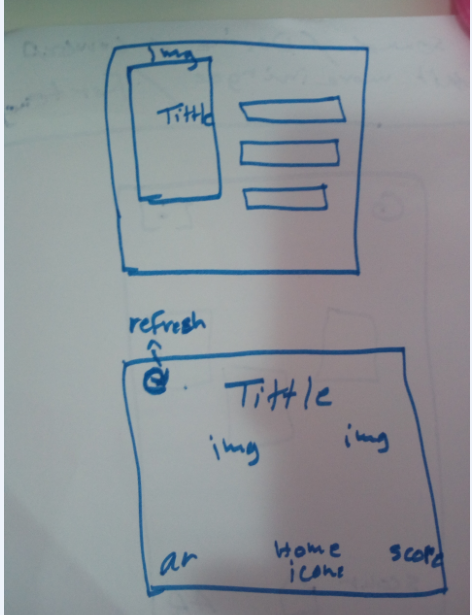 img
Tittle
refresh
Tittle
img img
ar Home score
icons